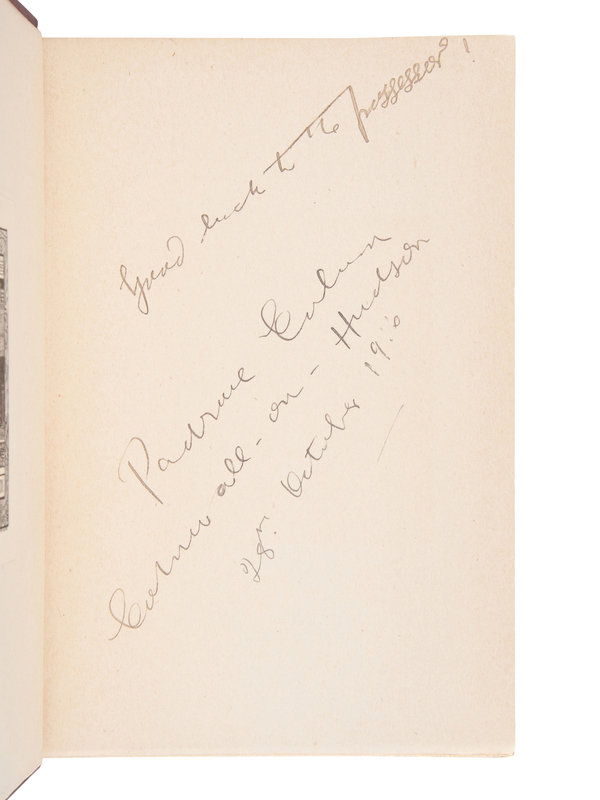 Good luck to the possessor!
Padraic Colum
Cornwall-on-Hudson
28th October